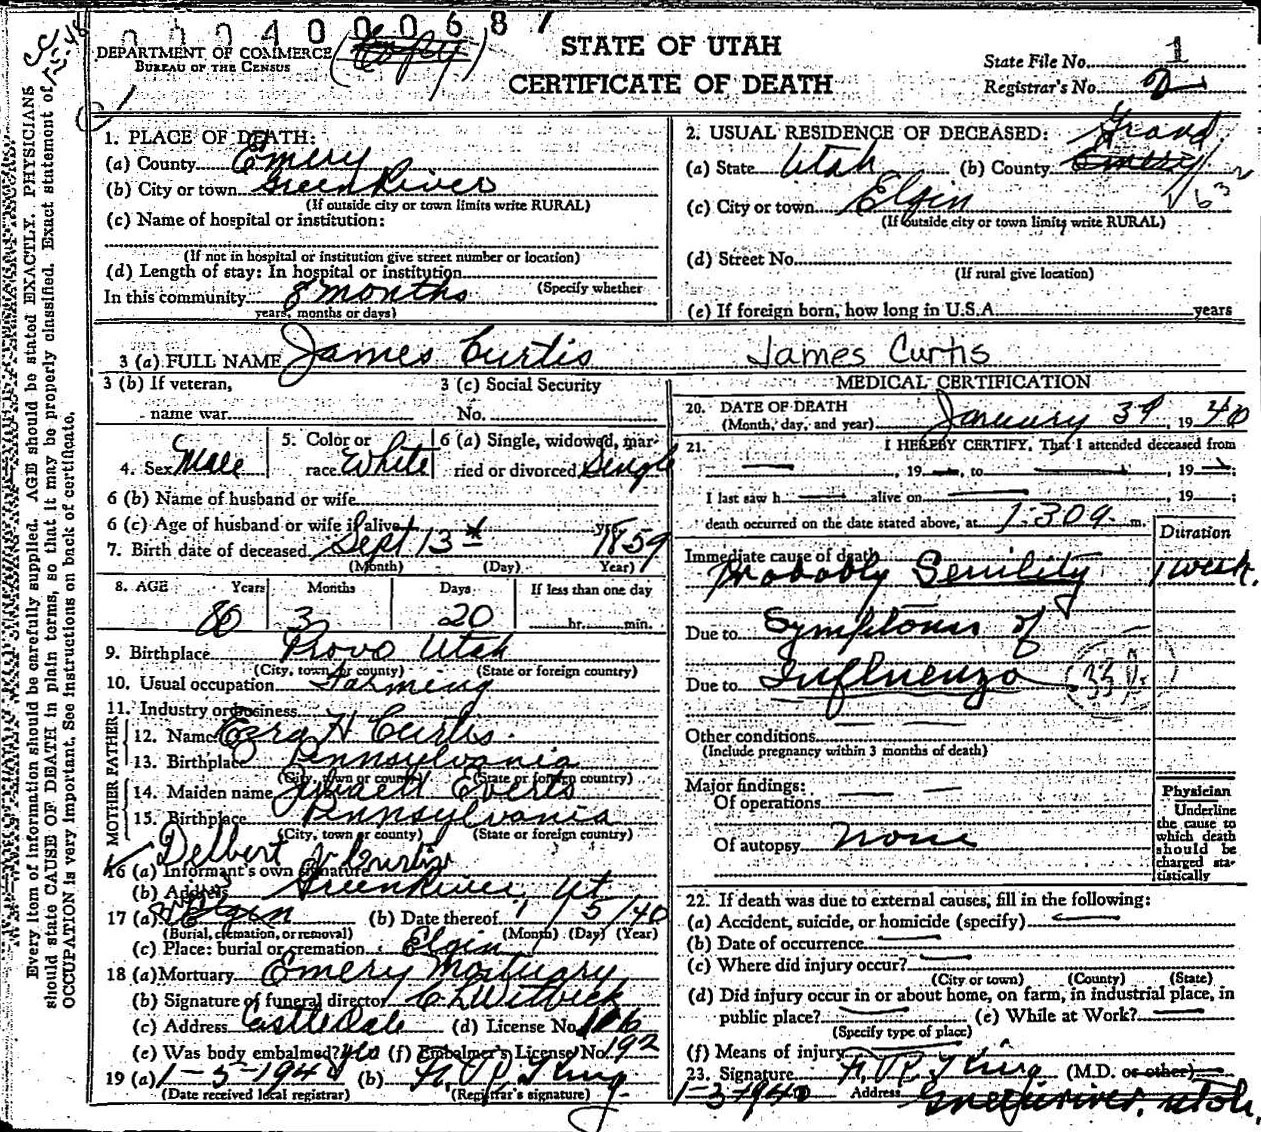 0 0 0 4 0 0 0 6 8 1
DEPARTMENT OF COMMERCE
BUREAU OF THE CENSUS
(Copy)
STATE OF UTAH
CERTIFICATE OF DEATH
State File No. 1
Registrar's No. 2
Every item of information should be carefully supplied. AGE should be stated EXACTLY. PHYSICIANS
should state CAUSE OF DEATH in plain terms, so that it may be properly classified. Exact statement of
OCCUPATION is very important. See instructions on back of certificate.
1. PLACE OF DEATH:
(a) County Emery
(b) City or town Green River
(If outside city or town limits write RURAL)
(c) Name of hospital or institution:
(If not in hospital or institution give street number or location)
(d) Length of stay: In hospital or institution
(Specify whether
In this community 8 months
years, months or days)
2. USUAL RESIDENCE OF DECEASED:
Grand
(a) State Utah (b) County Emery
(c) City or town Elgin
(If outside city or town limits write RURAL)
(d) Street No.
(If rural give location)
(e) If foreign born, how long in U.S.A. years
3 (a) FULL NAME James Curtis James Curtis
3 (b) If veteran,
name war
3 (c) Social Security
No.
4. Sex Male
5. Color or
race White
6 (a) Single, widowed, mar-
ried or divorced Single
6 (b) Name of husband or wife
6 (c) Age of husband or wife if alive yrs.
7. Birth date of deceased Sept 13th 1859
(Month) (Day) Year)
8. AGE Years Months Days If less than one day
80 3 20 hr. min.
9. Birthplace Provo Utah
(City, town or county) (State or foreign country)
10. Usual occupation Farming
11. Industry or business
FATHER
12. Name Ezra H Curtis
13. Birthplace Pennsylvania
(City, town or county) (State or foreign country)
MOTHER
14. Maiden name Everts
15. Birthplace Pennsylvania
(City, town or county) (State or foreign country)
Delbert Curtis
16 (a) Informant's own signature
(b) Address Green River, Ut
17 (a) Elgin (b) Date thereof 1/5/40
(Burial, cremation, or removal) (Month) (Day) (Year)
(c) Place: burial or cremation Elgin
18 (a) Mortuary Emery Mortuary
(b) Signature of funeral director
(c) Address Castle Dale (d) License No.
(e) Was body embalmed? yes (f) Embalmer's License No. 192
19 (a) 1-5-1940 (b)
(Date received local registrar) (Registrar's signature)
MEDICAL CERTIFICATION
20. DATE OF DEATH
(Month, day, and year) January 3d, 1940
21. I HEREBY CERTIFY, That I attended deceased from
, 19 , to , 19 ;
I last saw h alive on , 19 ;
death occurred on the date stated above, at 1:30 a. m.
Duration
Immediate cause of death
Probably Senility 1 week.
Due to Symptoms of
Due to Influenza
33
Other conditions
(Include pregnancy within 3 months of death)
Major findings:
Of operations
Of autopsy none
Physician
Underline
the cause to
which death
should be
charged sta-
tistically
22. If death was due to external causes, fill in the following:
(a) Accident, suicide, or homicide (specify)
(b) Date of occurrence
(c) Where did injury occur?
(City or town) (County) (State)
(d) Did injury occur in or about home, on farm, in industrial place, in
public place? (e) While at Work?
(Specify type of place)
(f) Means of injury
23. Signature (M.D. or other)
1-3-1940 Address Green River, Utah.